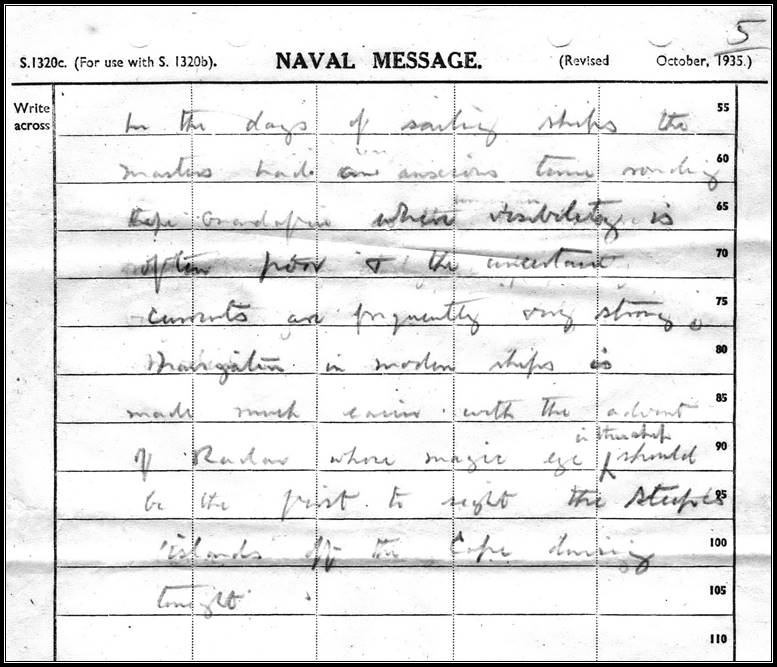 5
S.1320c. (For use with S. 1320b). NAVAL MESSAGE. (Revised October, 1935.)
Write across
In the days of sailing ships the 55
masters had an anxious time rounding 60
Cape Guardafui where visibility is 65
often poor & the uncertain 70
currents are frequently very strong. 75
Navigation in modern ships is 80
made much easier with the advent 85
in this ship
of Radar whose magic eye should 90
be the first to sight the steep 95
islands off the Cape during 100
tonight. 105
110